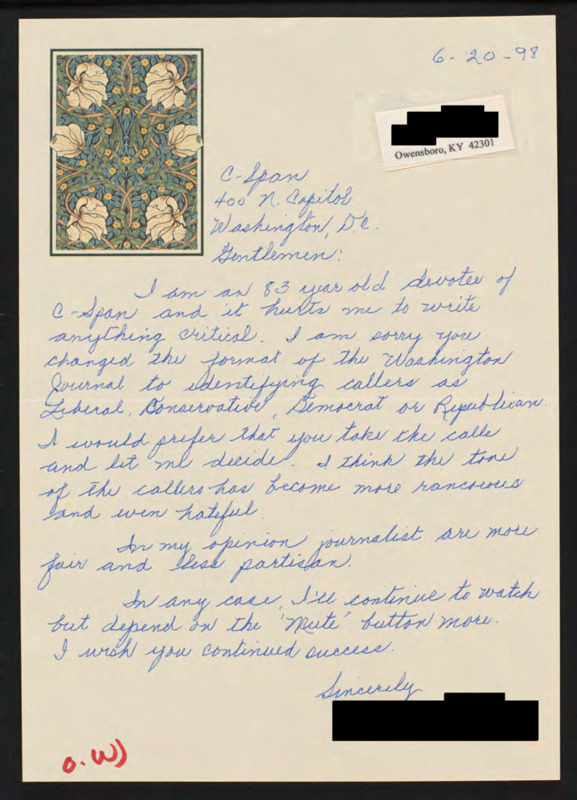 6-20-98
Owensboro, KY 42301
C-Span
400 N. Capitol
Washington, D.C.
Gentlemen:
I am an 83 year old devotee of
C-Span and it hurts me to write
anything critical. I am sorry you
changed the format of the Washington
Journal to identifying callers as
Liberal, Conservative, Democrat or Republican.
I would prefer that you take the calls
and let me decide. I think the tone
of the callers has become more rancorous
and even hateful.
In my opinion journalist are more
fair and less partisan.
In any case, I'll continue to watch
but depend on the 'Mute' button more.
I wish you continued success.
Sincerely
O.W)